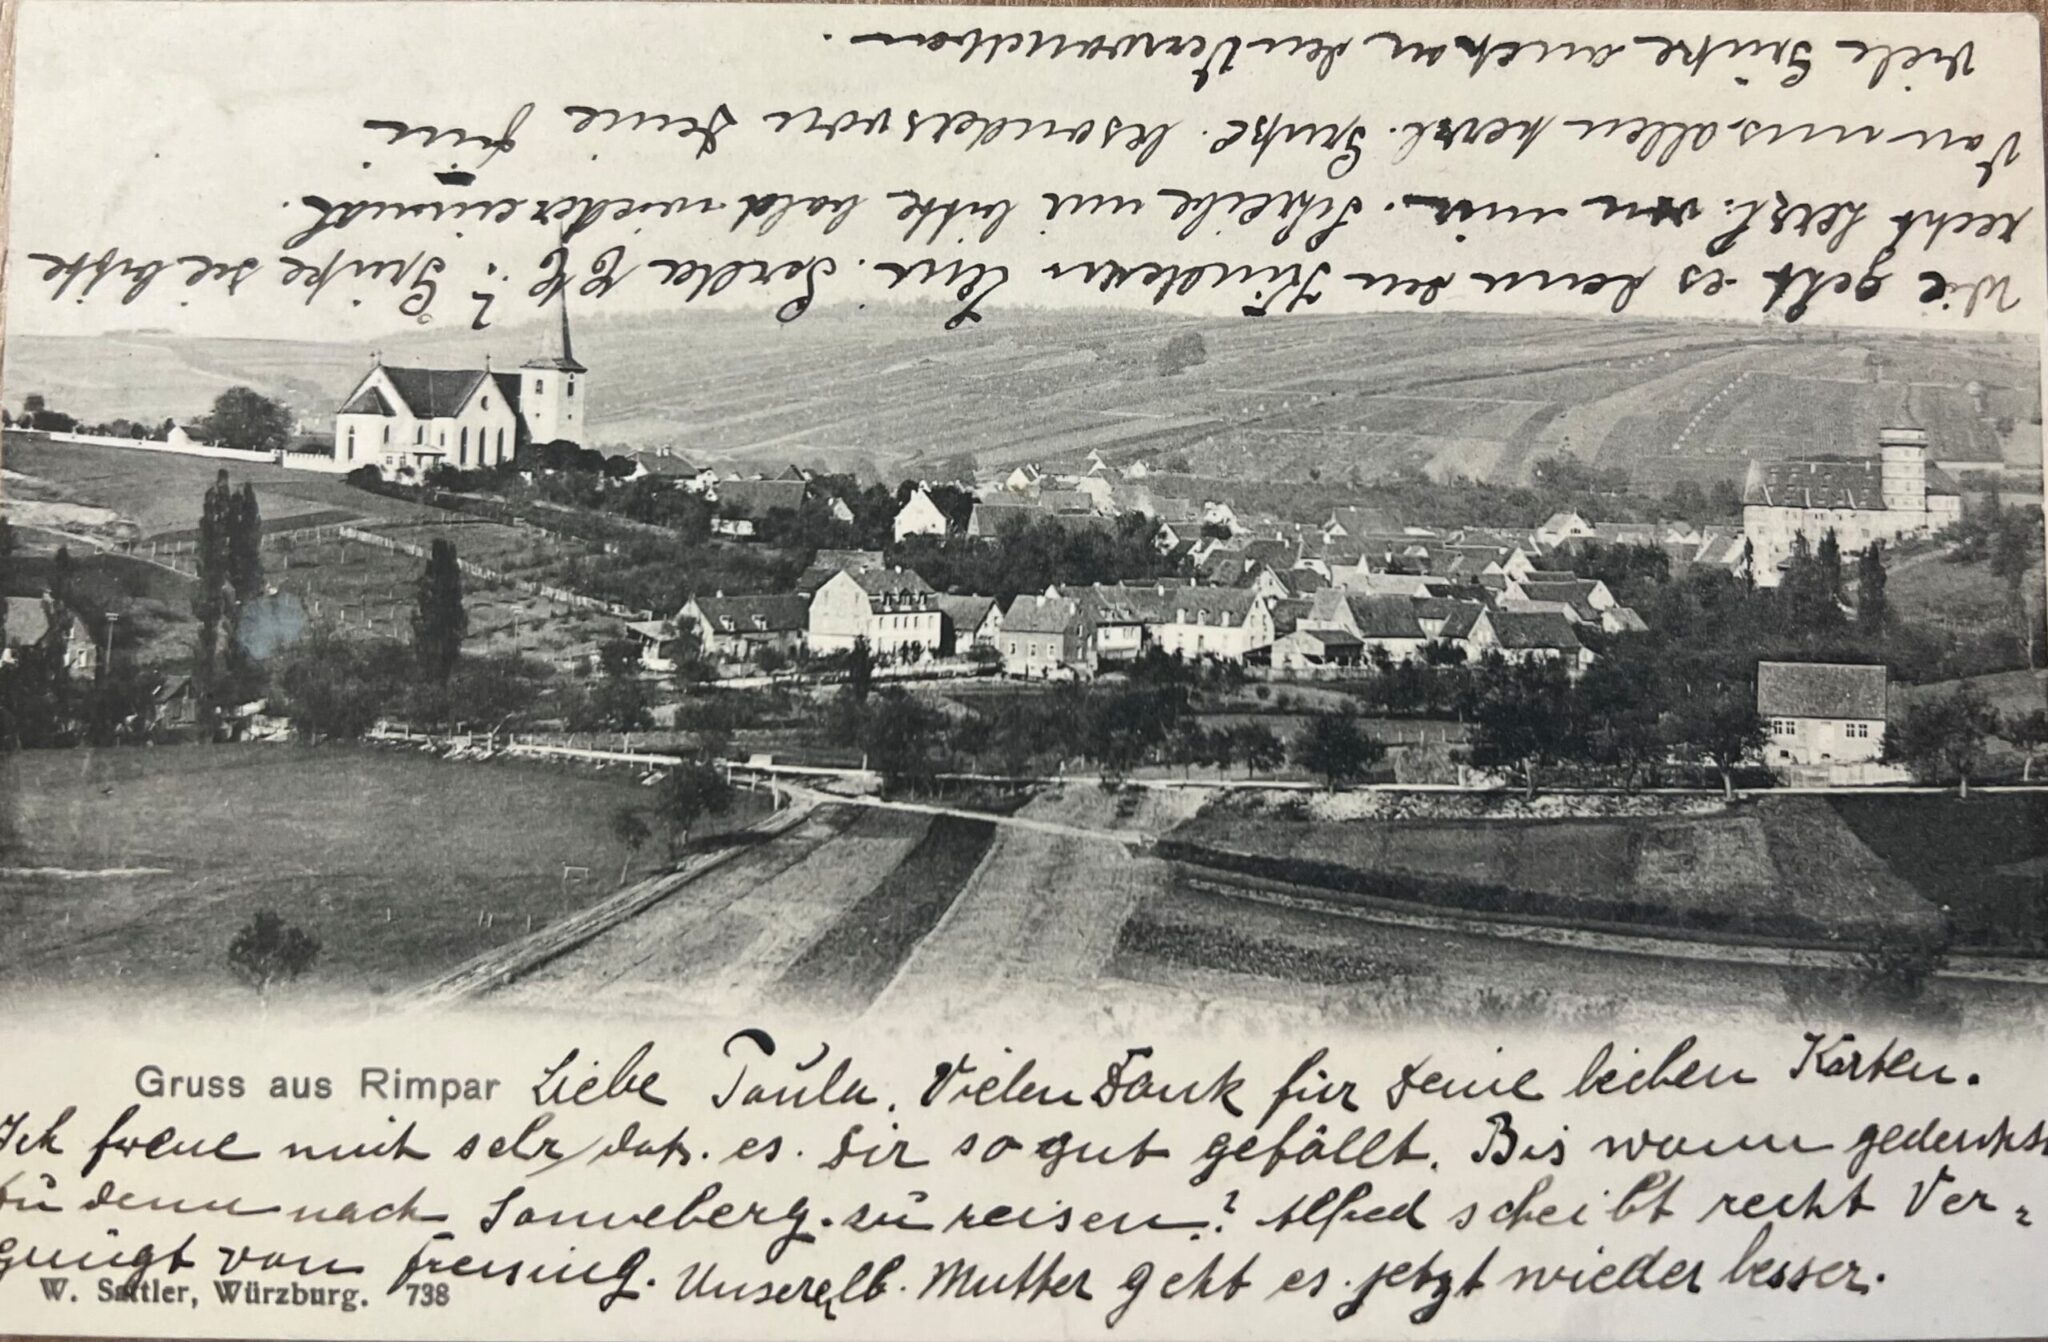 Gruss aus Rimpar Liebe Paula. Vielen Dank für Deine lieben Karten.
Ich freue mich sehr, daß. es. Dir so gut gefällt. Bis wann gedenkst
Du denn nach Sonneberg. zu reisen? Alfred scheibt recht Ver=
gnügt von Freising. Unsere lb. Mutter geht es. jetzt wieder besser.
W. Sattler, Würzburg. 738
Wie geht es denn den Kindern Gerda ? Grüße sie bitte
recht herzl. von mir. Schreibe mir bitte bald wieder einmal.
Von uns. allen herzl. Grüße. besonders von Deine
Viele Grüße auch an den Verwandten.